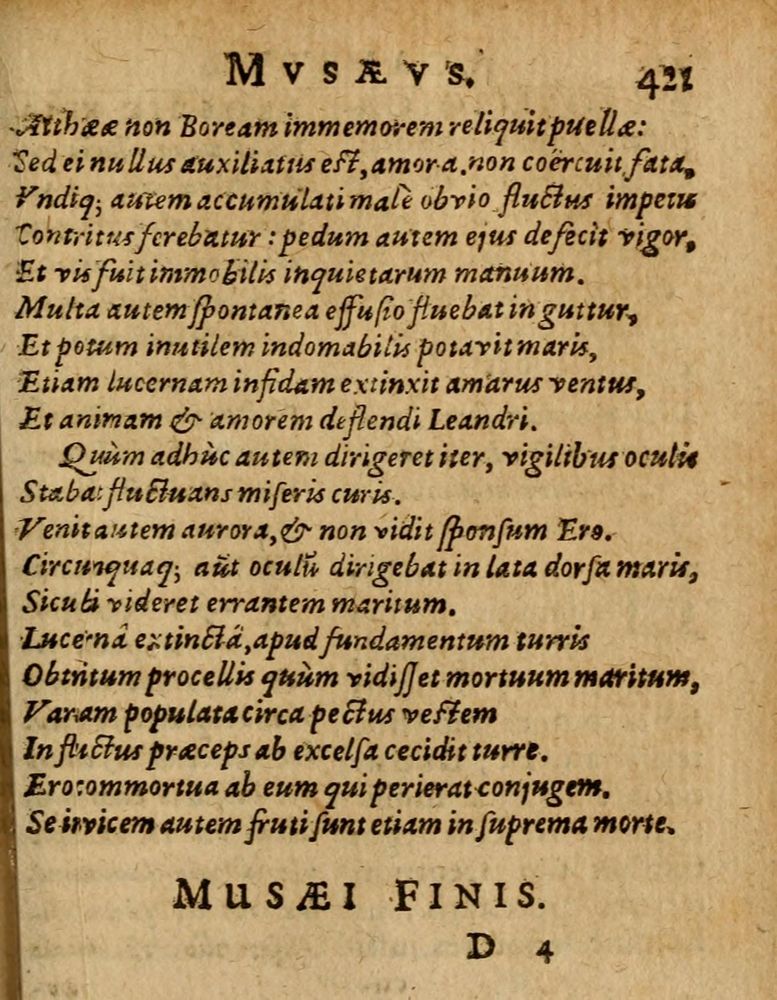 MVSÆVS. 421
Atthææ non Boream immemorem reliquit puellæ:
Sed ei nullus auxiliatus eſt, amor a. non coërcuit fata,
Vndiq; autem accumulati malè obvio fluctus impetu
Contritus ferebatur: pedum autem ejus defecit vigor,
Et vis fuit immobilis inquietarum manuum.
Multa autem ſpontanea effuſio fluebat in guttur,
Et potum inutilem indomabilis potavit maris,
Etiam lucernam infidam extinxit amarus ventus,
Et animam & amorem deflendi Leandri.
Quùm adhùc autem dirigeret iter, vigilibus oculis
Stabat fluctuans miſeris curis.
Venit autem aurora, & non vidit ſponſum Ero.
Circunquaq; aūt oculū dirigebat in lata dorſa maris,
Sicubi videret errantem maritum.
Lucernâ extinctâ, apud fundamentum turris
Obtritum procellis quùm vidiſſet mortuum maritum,
Variam populata circa pectus veſtem
In fluctus præceps ab excelſa cecidit turre.
Ero commortua ab eum qui perierat conjugem.
Se invicem autem fruti ſunt etiam in ſuprema morte.
MUSÆI FINIS.
D 4